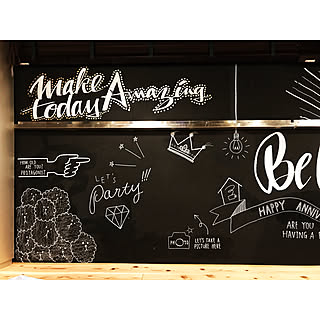 make
today Amazing
HOW OLD
ARE YOU?
PROTAGONIST
LET'S
Party!!!
LET'S TAKE A
PICTURE HERE
Be
HAPPY ANNIV
ARE YOU
HAVING A